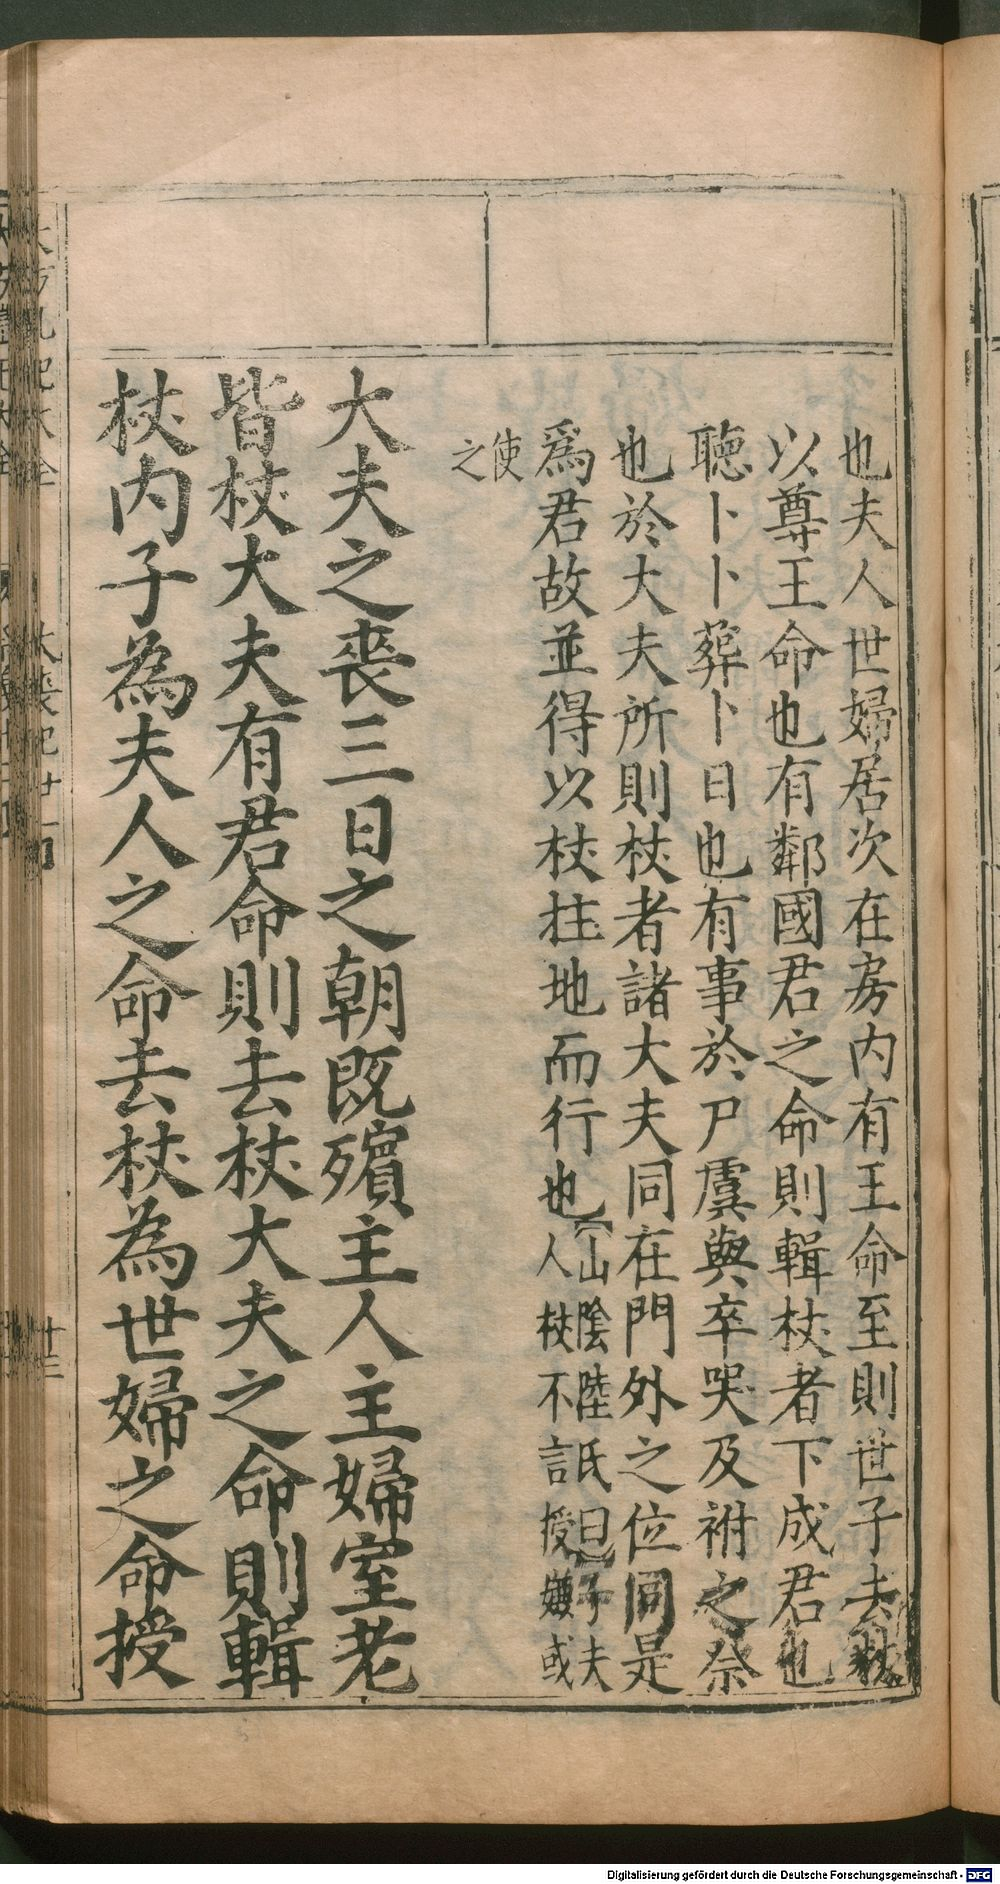 也夫人世婦居次在房内有王命至則世子去杖
以尊王命也有鄰國君之命則輯杖者下成君也
聽卜卜葬卜日也有事於尸虞與卒哭及祔之祭
也於大夫所則杖者諸大夫同在門外之位同是
爲君故並得以杖拄地而行也【山陰陸氏曰】子夫
人杖不言授嫌或
使
之
大夫之喪三日之朝既殯主人主婦室老
皆杖大夫有君命則去杖大夫之命則輯
杖内子為夫人之命去杖為世婦之命授
Digitalisierung gefördert durch die Deutsche Forschungsgemeinschaft - DFG